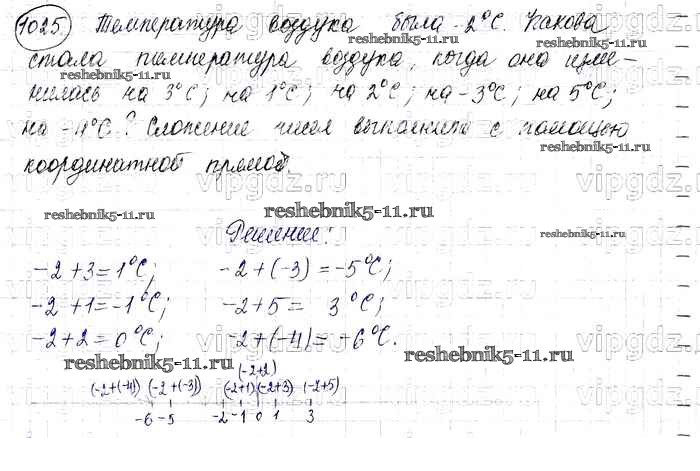 1025. Температура воздуха была -2°С. Какова
стала температура воздуха, когда она изме-
нилась на 3°С; на 1°С; на 2°С; на -3°С; на 5°С;
на -4°С? Сложение чисел выполнить с помощью
координатной прямой.
Решение:
-2+3=1°С; -2+(-3)=-5°С;
-2+1=-1°С; -2+5= 3°С;
-2+2=0°С; -2+(-4)=-6°С.
(-2+2)
(-2+(-4)) (-2+(-3)) (-2+1) (-2+3) (-2+5)
-6 -5 -2 -1 0 1 3
reshebnik5-11.ru
reshebnik5-11.ru
reshebnik5-11.ru
reshebnik5-11.ru
reshebnik5-11.ru
reshebnik5-11.ru
reshebnik5-11.ru
reshebnik5-11.ru
reshebnik5-11.ru
vipgdz.ru
vipgdz.ru
vipgdz.ru
vipgdz.ru
vipgdz.ru
vipgdz.ru